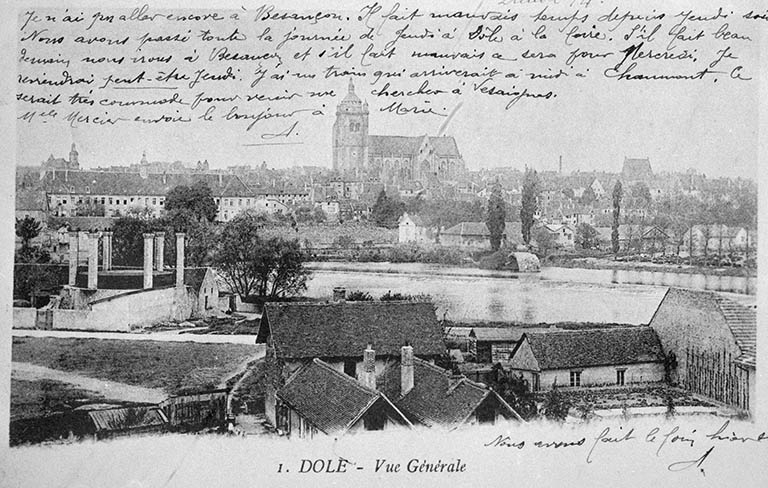 Je n'ai pas aller encore à Besançon. Il fait mauvais temps depuis Jeudi soir
Nous avons passé toute la journée de Jeudi à Dôle à la Foire. S'il fait beau
demain nous irons à Besançon et s'il fait mauvais ce sera pour Mercredi. Je
reviendrai peut-être Jeudi. J'ai un train qui arriverait à midi à Chaumont, ce
serait très commode pour venir me chercher à Vesaignes.
Melle Mercier envoie le bonjour à Marie.
Nous avons fait le foin hier
1. DOLE - Vue Générale